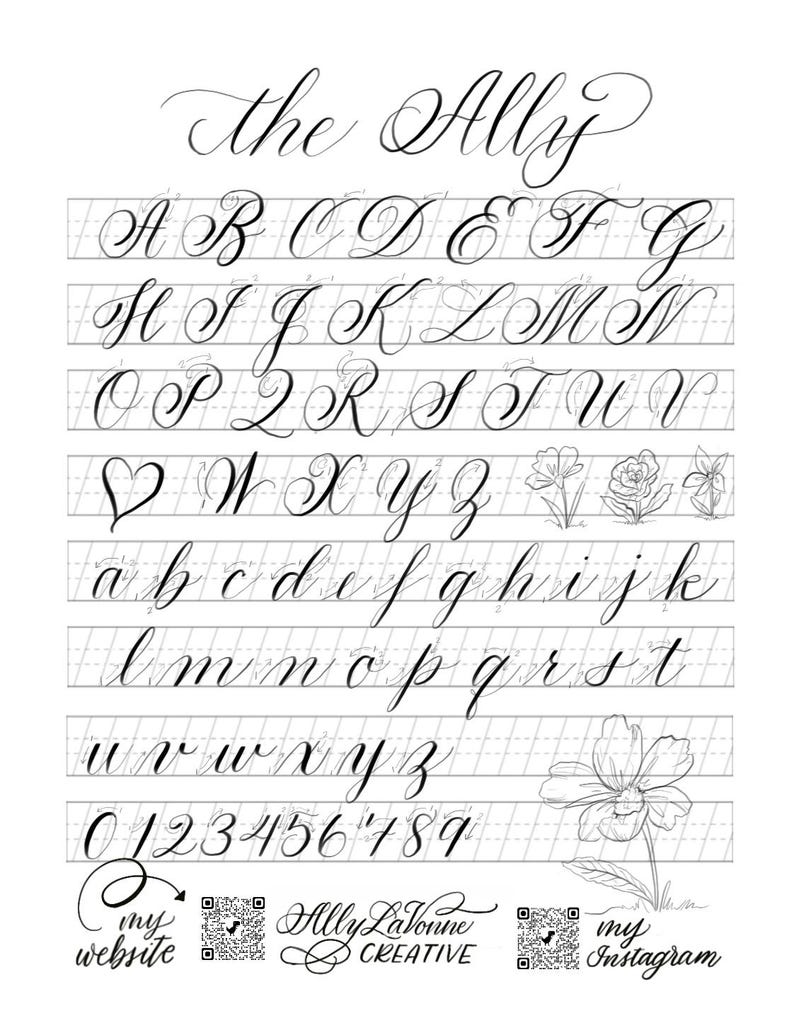 the Ally
A B C D E F G
H I J K L M N
O P Q R S T U V
W X Y Z
a b c d e f g h i j k
l m n o p q r s t
u v w x y z
0 1 2 3 4 5 6 7 8 9
my
website
Ally LaVonne
CREATIVE
my
Instagram